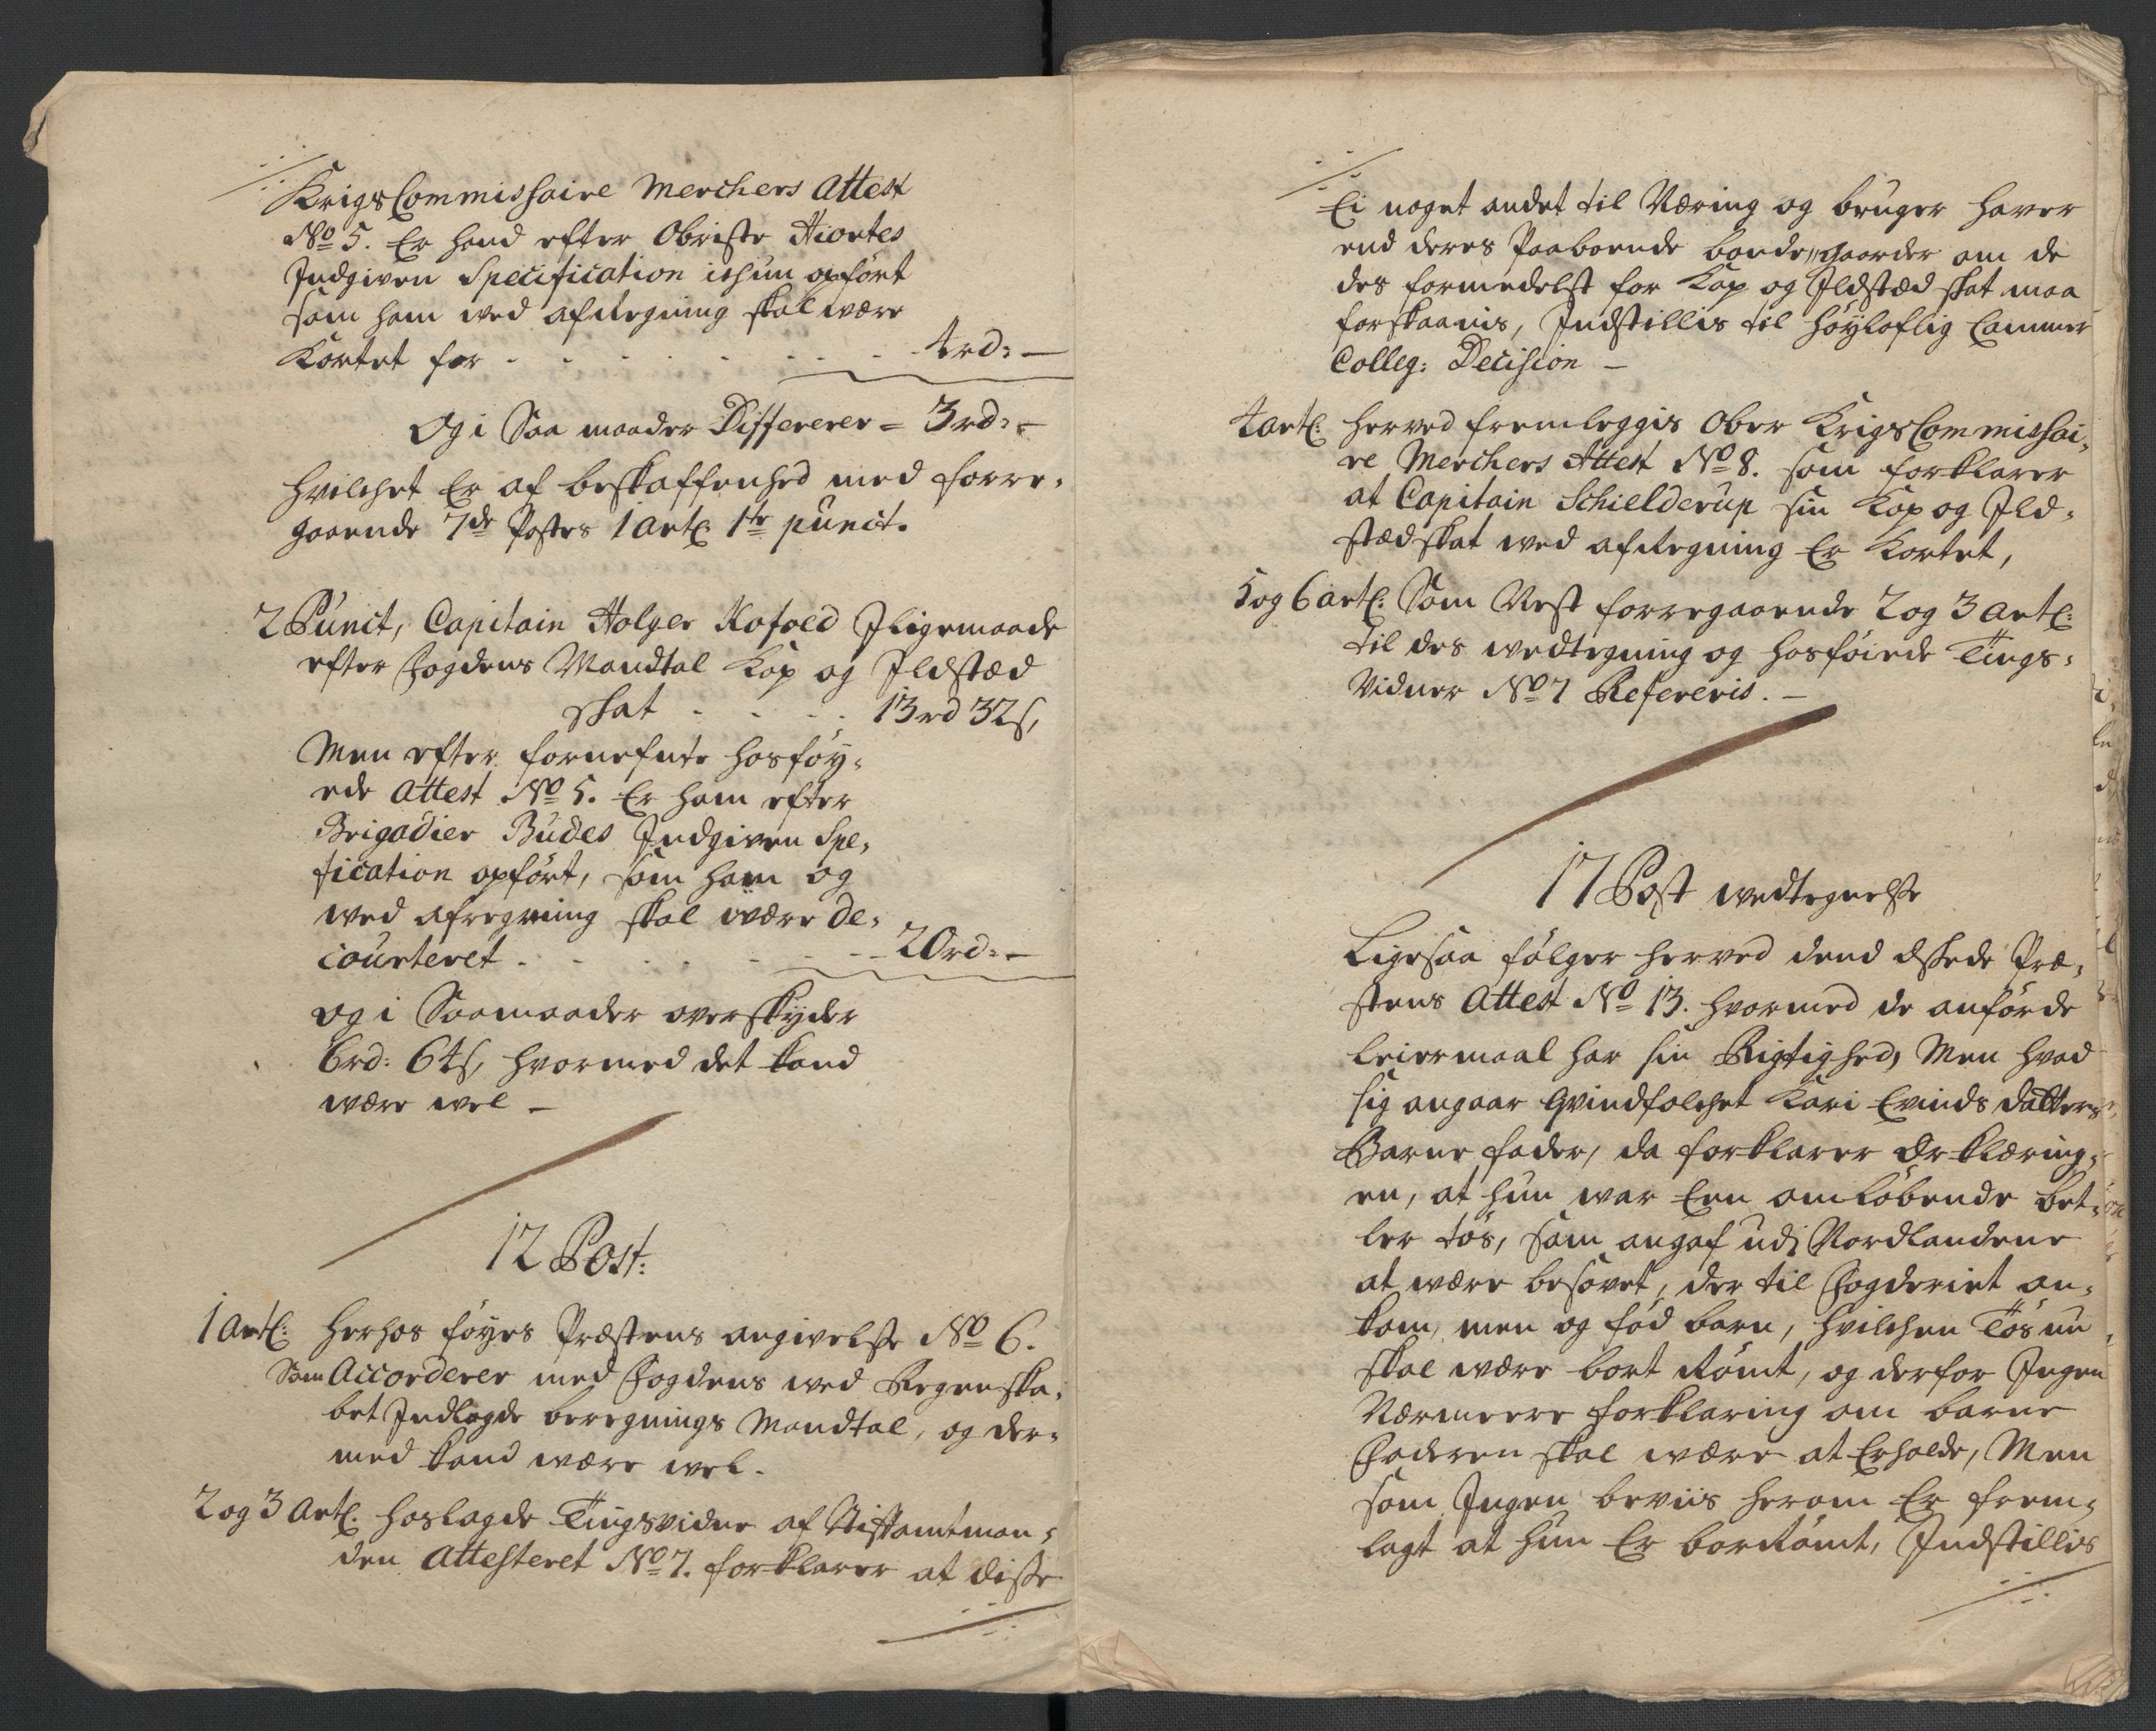 KrigsCommissaire Merchers Attest
No 5. Er hand efter Obriste Hiortes
Indgiven Specification ichun opført
som ham ved afregning skal være
Kortet for - - - - - - - 4rd: —
Og i Saa maader Differerer = 3rd: —
hvilchet Er af beskaffenhed med forre¬
gaaende 7de Postes 1 artl: 1te punct.
2 Punct, Capitain Holger Kofoed Iligemaade
efter Fogdens Mandtal Kop og Ildsted
skat - - - - 13rd 32s,
Men efter fornefnte hosføy¬
ede Attest No 5. Er ham efter
Brigadier Budes Indgiven Spe¬
fication opført, som ham og
ved afregning skal være de¬
courteret - - - - - - - 20rd: —
og i Saamaader overskyder
6rd: 64s, hvormed det kand
være vel —
12 Post:
1 Artl: herhos føyes Præstens angivelse No 6.
Som Accorderer med Fogdens ved Regenska¬
bet Indlagde beregnings Mandtal, og der¬
med kand være vel.
2 og 3 Artl: hoslagde Tingsvidne af Stiftamtman¬
den Attesteret No 7. forklarer at disse
Ei noget andet til Næring og bruger haver
end deres Paaboende bonde gaarder om de
des formedelst for Kop og Ildstæd skat maa
forskaanis, Indstillis til høyloflig Cammer
Colleg: Decision —
4 artl: herved fremleggis Ober KrigsCommissai¬
re Merchers Attest No 8. som forklarer
at Capitain Schielderup sin Kop og Ild¬
stædskat ved afregning Er Kortet,
5 og 6 artl: Som Nest forregaaende 2 og 3 artl:
til des vedtegning og hosføiede Tings¬
Vidner No 7 Refereris. —
17 Post vedtegnelse
Ligesaa følger herved dend Præ¬
stens Attest No 13. hvormed de anførde
leiermaal har sin Rigtighed, Men hvad
sig angaar qvindfolchet Kari Evinds datters
Barne fader, da forklarer Erklæring¬
en, at hun var Een omløbende bet¬
ler tøs, som angaf udi Nordlandene
at være besovet, der til Fogderiet an¬
kom, men og fød barn, hvilchen Tøs nu
skal være bort Rømt, og derfor Ingen
Nærmeere forklaring om barne
Faderen skal være at Erholde, Men
som Ingen beviis herom Er frem¬
lagt at hun Er bortrømt, Indstillis